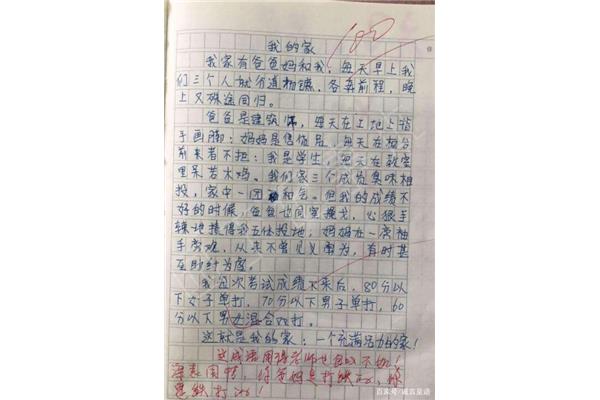 100
我的家
我家有爸爸妈和我，每天早上我
们三个人就分道扬镳，各奔前程，晚
上又殊途同归。
爸爸是建筑师，每天在工地上指
手画脚；妈妈是售货员，每天在柜台
前来者不拒；我是学生，每天在教室
里呆若木鸡。我们家三个成员臭味相
投，家中一团和气。但我的成绩不
好的时候，爸爸也同室操戈，心狠手
辣地揍得我五体投地；妈妈在一旁袖
手旁观，从来不曾见义勇为，有时甚
至助纣为虐。
我每次考试成绩下来后，80分以
下女子单打，70分以下男子单打，60
分以下男女混合双打。
这就是我的家：一个充满活力的家！
这成语用得老师也自叹不如！
深表同情，你爸妈是打铁的，
是铁打的！
百家号/诚言至语